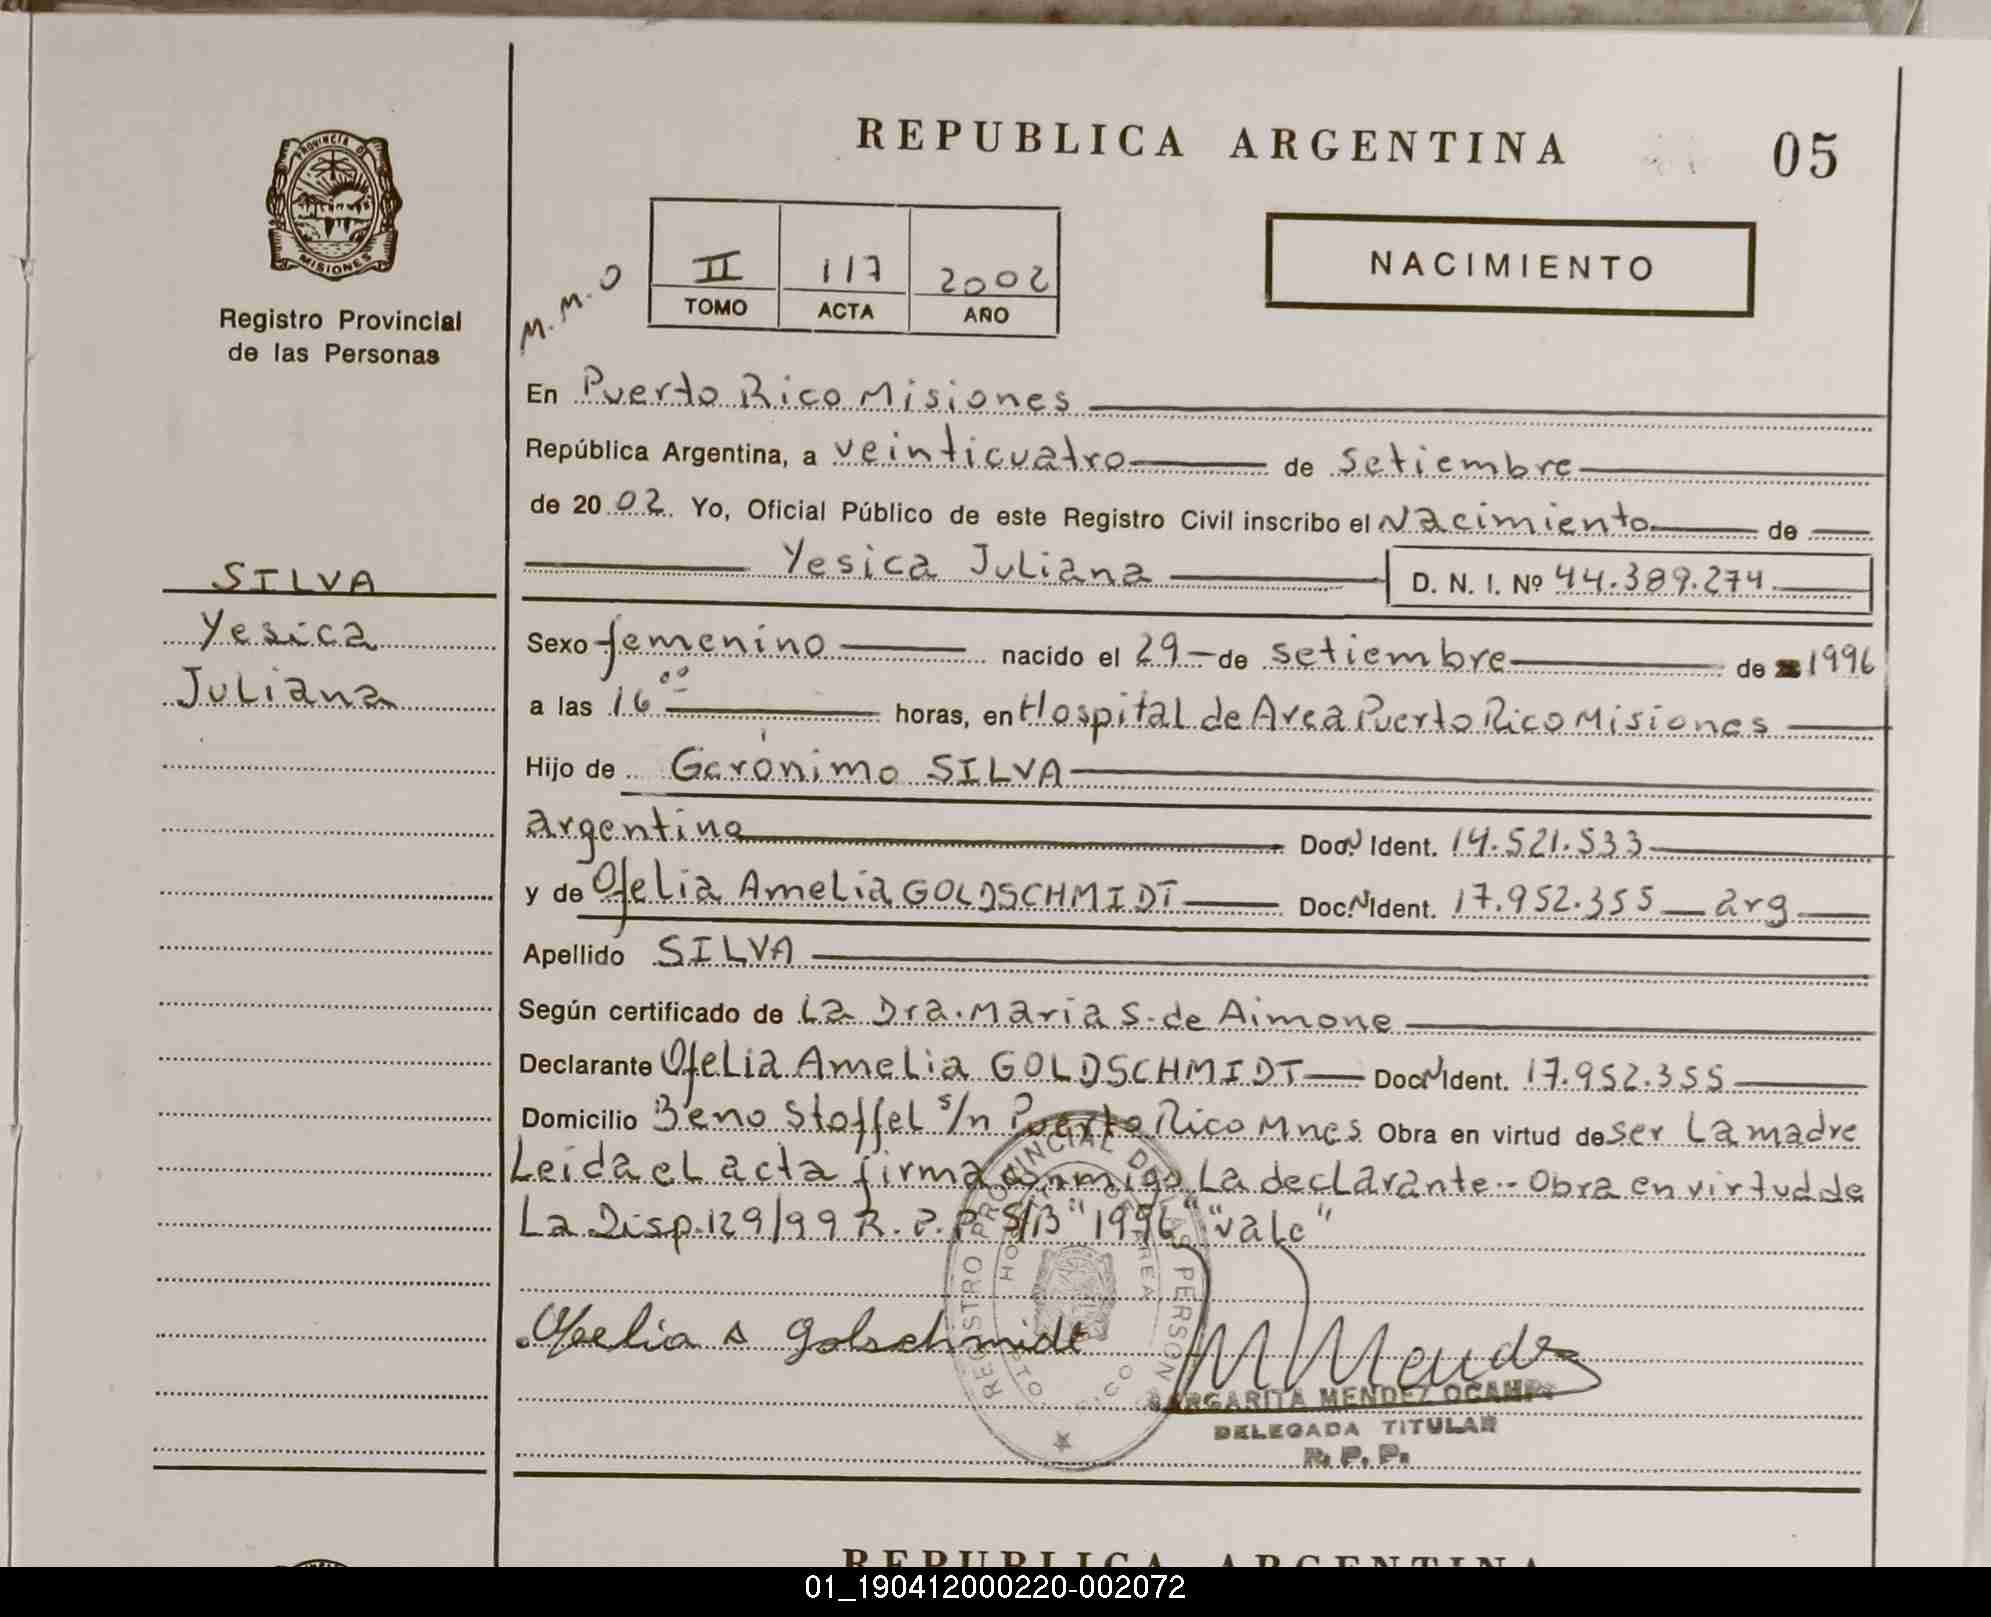 REPUBLICA ARGENTINA
05
PROVINCIA DE
MISIONES
Registro Provincial
de las Personas
M.M.O
II 117 2002
TOMO ACTA AÑO
NACIMIENTO
En Puerto Rico Misiones
República Argentina, a veinticuatro de setiembre
de 2002 Yo, Oficial Público de este Registro Civil inscribo el Nacimiento de
Yesica Juliana D. N. I. Nº 44.389.274
SILVA
Yesica
Juliana
Sexo femenino nacido el 29 de setiembre de 1996
a las 16 00 horas, en Hospital de Area Puerto Rico Misiones
Hijo de Gerónimo SILVA
argentino Doc. N Ident. 14.521.533
y de Ofelia Amelia GOLDSCHMIDT Doc. N Ident. 17.952.355 arg
Apellido SILVA
Según certificado de La Dra. Maria S. de Aimone
Declarante Ofelia Amelia GOLDSCHMIDT Doc. N Ident. 17.952.355
Domicilio Beno Stoffel s/n Puerto Rico Mnes Obra en virtud de ser La madre
Leida el acta firma conmigo La declarante.- Obra en virtud de
La Disp. 129/99 R.P.P. S/B "1996" "vale"
REGISTRO PROVINCIAL DE LAS PERSONAS
HOSPITAL DE AREA
PTO. RICO
Ofelia A Golschmidt
M Mendez
MARGARITA MENDEZ OCAMPO
DELEGADA TITULAR
R. P. P.
REPUBLICA ARGENTINA
01_190412000220-002072